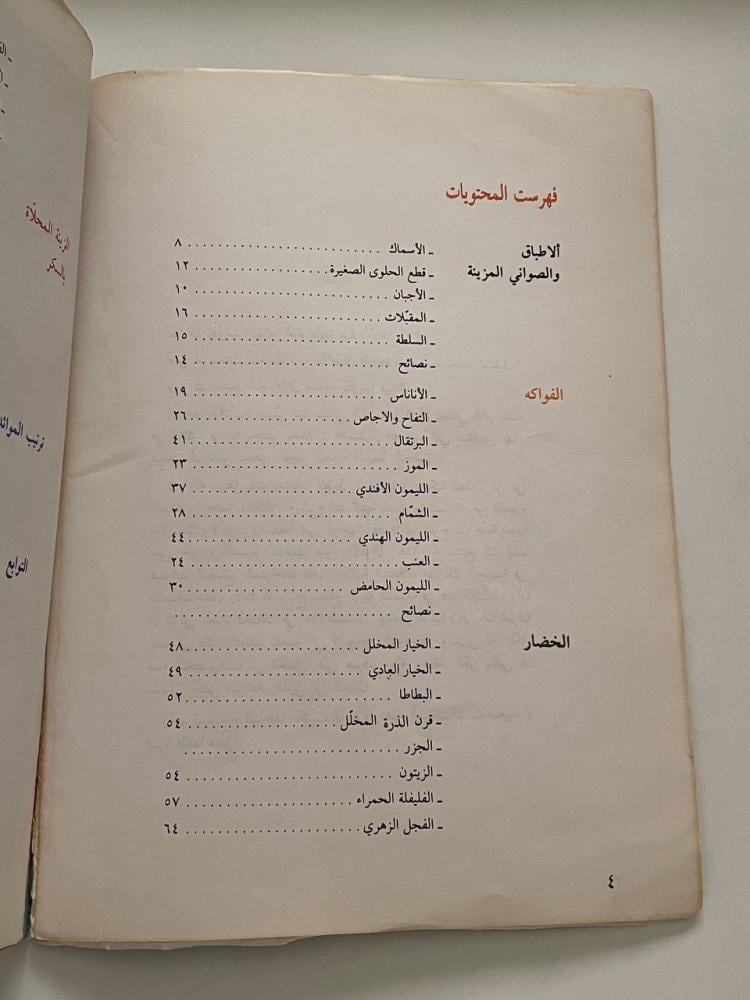 فهرست المحتويات
ألاطباق
والصواني المزينة
ـ الأسماك . . . . . . . . . . . . . . . . . . . . . . . . . ٨
ـ قطع الحلوى الصغيرة . . . . . . . . . . . . . . . . . ١٢
ـ الأجبان . . . . . . . . . . . . . . . . . . . . . . . . ١٠
ـ المقبّلات . . . . . . . . . . . . . . . . . . . . . . . ١٦
ـ السلطة . . . . . . . . . . . . . . . . . . . . . . . . ١٥
ـ نصائح . . . . . . . . . . . . . . . . . . . . . . . . ١٤
الفواكه
ـ الأناناس . . . . . . . . . . . . . . . . . . . . . . . ١٩
ـ التفاح والاجاص . . . . . . . . . . . . . . . . . . ٢٦
ـ البرتقال . . . . . . . . . . . . . . . . . . . . . . . ٤١
ـ الموز . . . . . . . . . . . . . . . . . . . . . . . . . ٢٣
ـ الليمون الأفندي . . . . . . . . . . . . . . . . . . ٣٧
ـ الشمّام . . . . . . . . . . . . . . . . . . . . . . . ٢٨
ـ الليمون الهندي . . . . . . . . . . . . . . . . . . ٤٤
ـ العنب . . . . . . . . . . . . . . . . . . . . . . . . ٢٤
ـ الليمون الحامض . . . . . . . . . . . . . . . . . ٣٠
ـ نصائح . . . . . . . . . . . . . . . . . . . . . . . .
الخضار
ـ الخيار المخلل . . . . . . . . . . . . . . . . . . . ٤٨
ـ الخيار العادي . . . . . . . . . . . . . . . . . . . ٤٩
ـ البطاطا . . . . . . . . . . . . . . . . . . . . . . . ٥٢
ـ قرن الذرة المخلّل . . . . . . . . . . . . . . . . ٥٤
ـ الجزر . . . . . . . . . . . . . . . . . . . . . . . . .
ـ الزيتون . . . . . . . . . . . . . . . . . . . . . . . ٥٤
ـ الفليفلة الحمراء . . . . . . . . . . . . . . . . . ٥٧
ـ الفجل الزهري . . . . . . . . . . . . . . . . . . ٦٤
٤
الزينة المحلّاة
بالسكر
ترتيب الموائد
التوابع